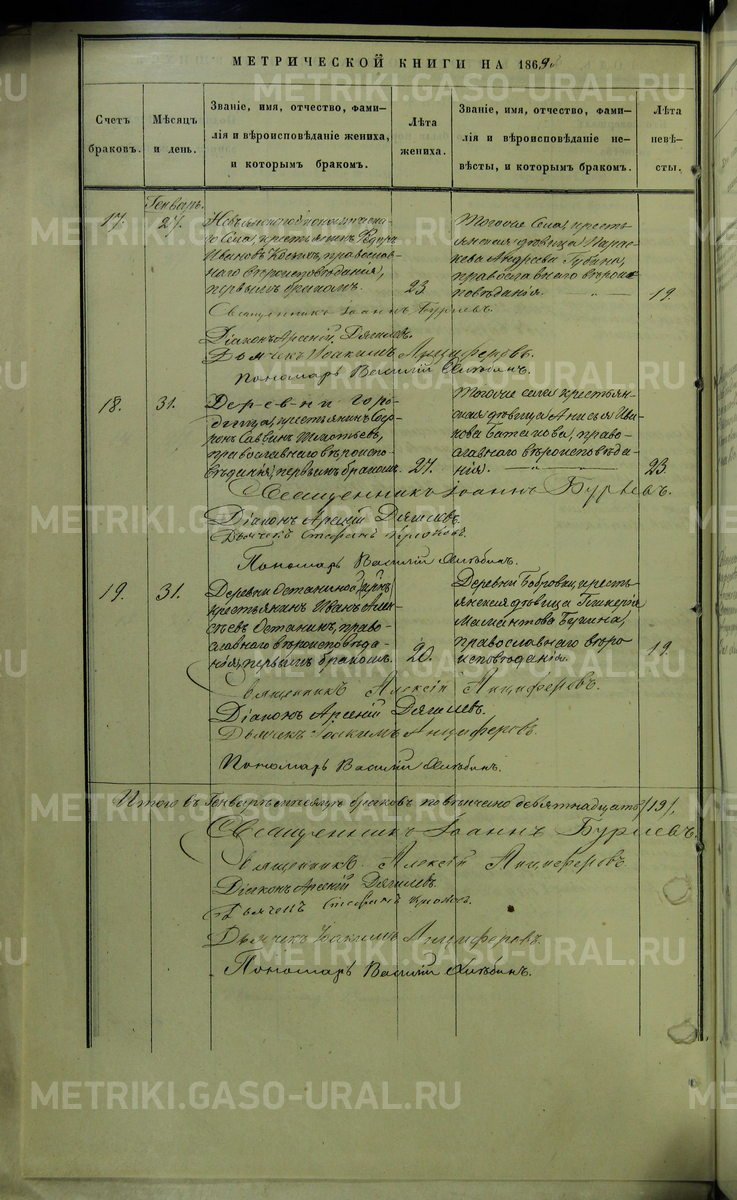 МЕТРИЧЕСКОЙ КНИГИ НА 1869
Счетъ браковъ.
Мѣсяцъ и день.
Званіе, имя, отчество, фами-
лія и вѣроисповѣданіе жениха,
и которымъ бракомъ.
Лѣта жениха.
Званіе, имя, отчество, фами-
лія и вѣроисповѣданіе не-
вѣсты, и которымъ бракомъ.
Лѣта невѣ-
сты.
Генварь.
17.
27.
села, крестьянинъ
Ивановъ православ-
наго вѣроисповѣданія,
первымъ бракомъ.
23
села, кресть-
янская дѣвица
Андреева Губина,
православнаго вѣроис-
повѣданія.
19.
Священникъ Іоаннъ Бурнев.
Діаконъ Арсеній Дягилевъ.
Дьячекъ Іоакимъ Анциферовъ.
Пономарь Василій Хлѣбинъ.
18.
31.
Деревни Горо-
дища, крестьянинъ
Саввинъ
православнаго вѣроиспо-
вѣданія, первымъ бракомъ.
27.
села крестьян-
ская дѣвица Анисья Ива-
нова право-
славнаго вѣроисповѣда-
нія.
23
Священникъ Іоаннъ
Діаконъ Арсеній Дягилевъ.
Дьячекъ Стефанъ
Пономарь Василій Хлѣбинъ.
19.
31.
Деревни Останиной
крестьянинъ Иванъ
Останинъ, право-
славнаго вѣроисповѣда-
нія, первымъ бракомъ.
20.
Деревни Бобровки, кресть-
янская дѣвица Гликерія
Мамонтова
православнаго вѣро-
исповѣданія.
19.
Священникъ Алексій Анциферовъ.
Діаконъ Арсеній Дягилевъ.
Дьячекъ Іоакимъ Анциферовъ.
Пономарь Василій Хлѣбинъ.
Итого въ Генварѣ мѣсяцѣ браковъ повѣнчано девятнадцать /19/.
Священникъ Іоаннъ
Священникъ Алексій Анциферовъ.
Діаконъ Арсеній Дягилевъ.
Дьячекъ Стефанъ
Дьячекъ Іоакимъ Анциферовъ.
Пономарь Василій Хлѣбинъ.
METRIKI.GASO-URAL.RU